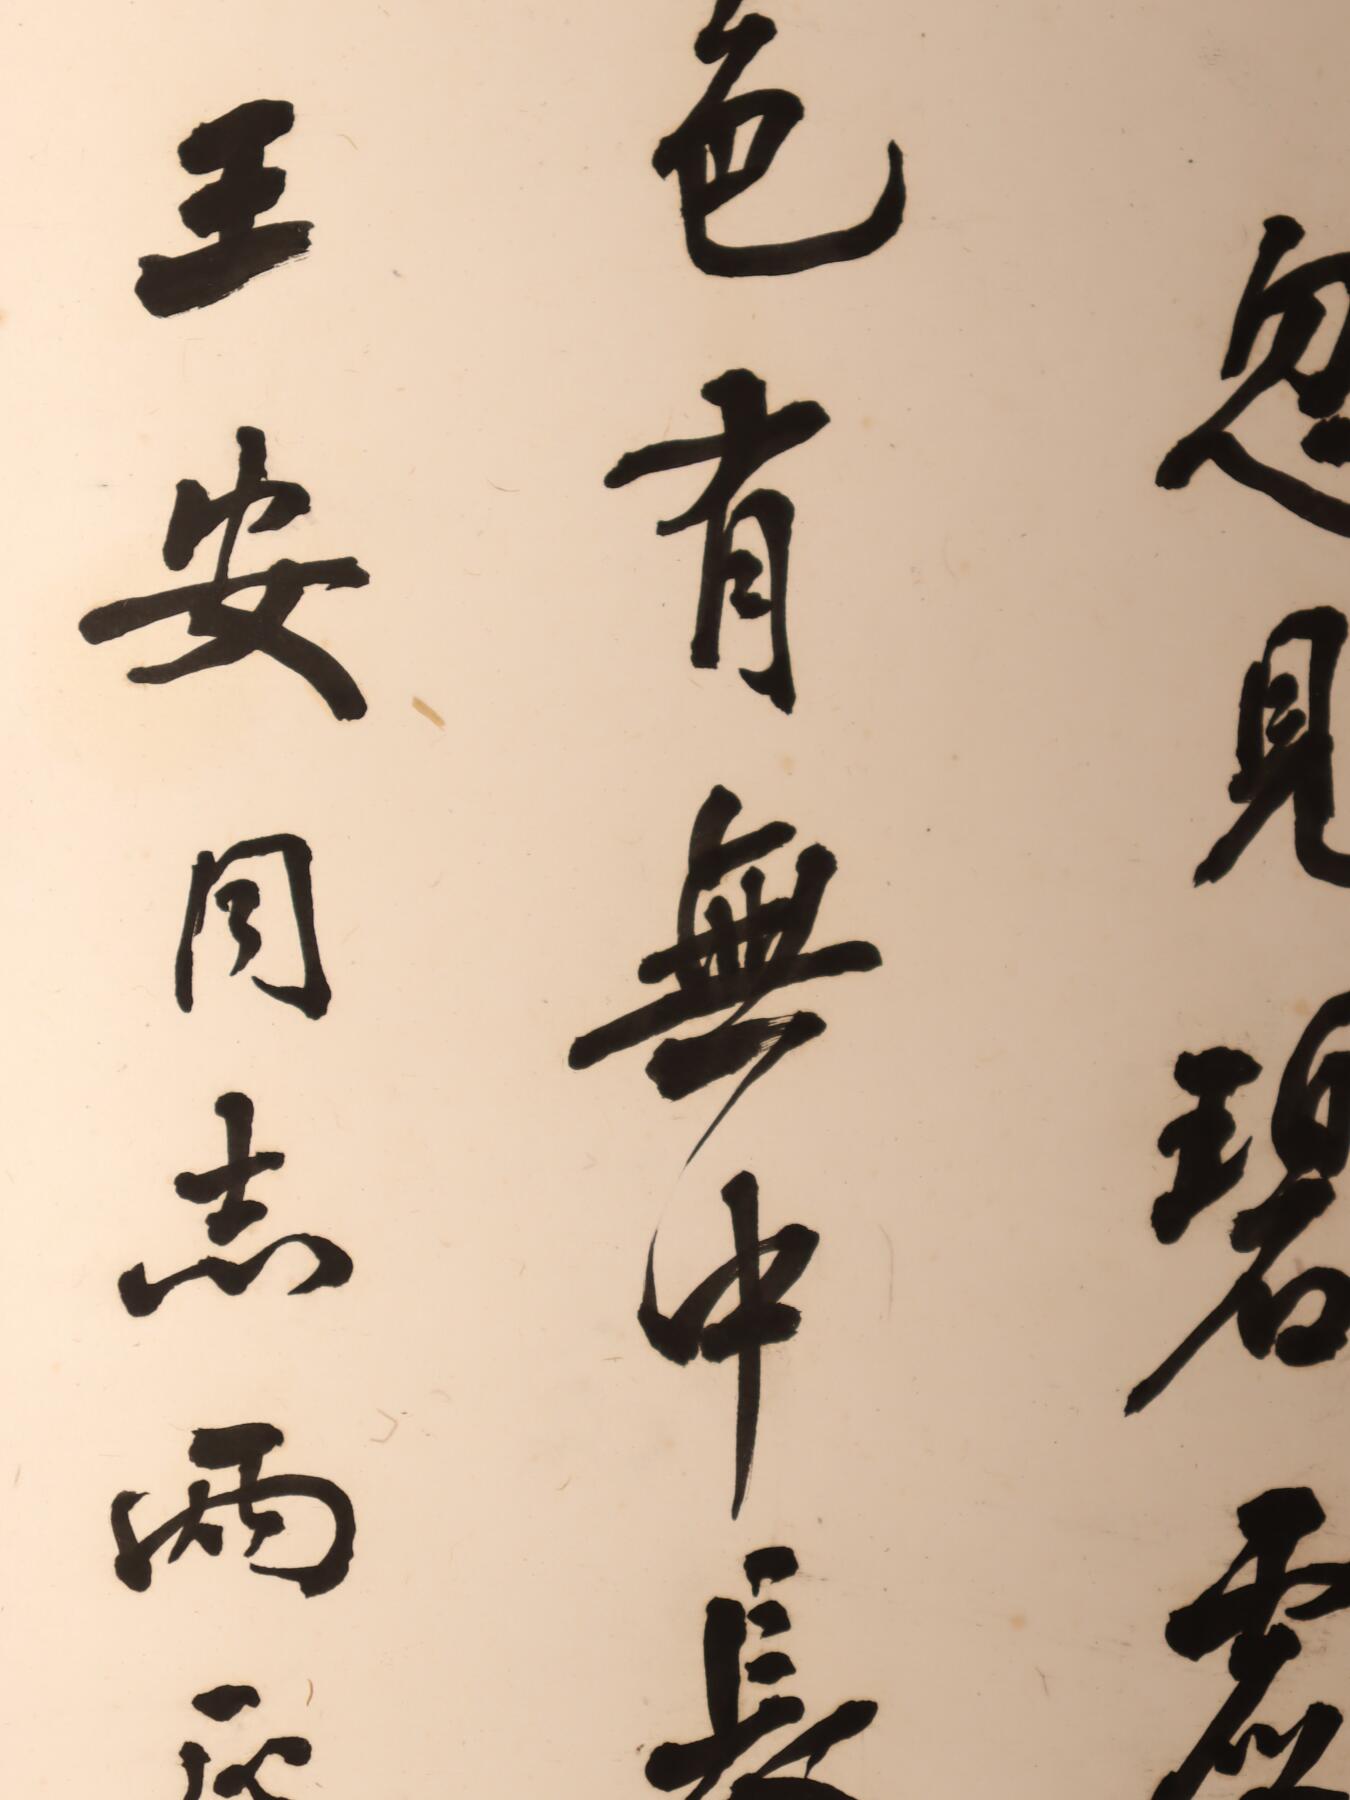 忽見碧
色有無中長
王安同志兩